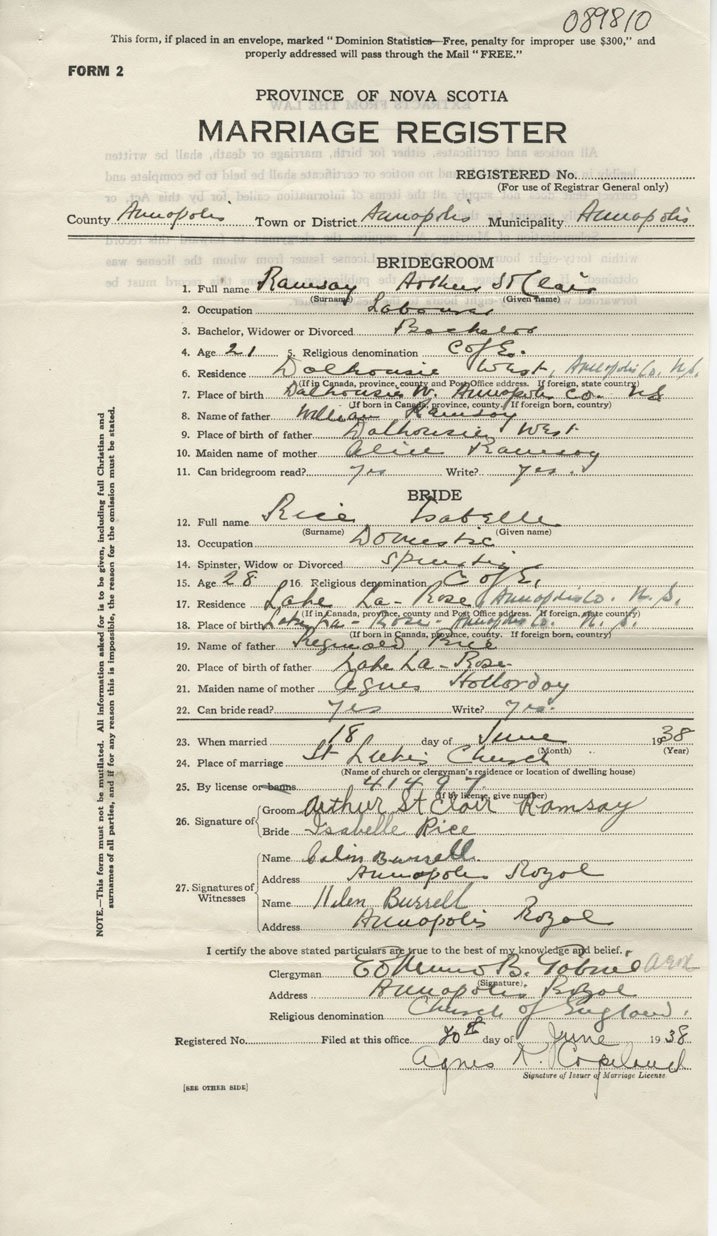 089810
This form, if placed in an envelope, marked "Dominion Statistics—Free, penalty for improper use $300," and
properly addressed will pass through the Mail "FREE."
FORM 2
PROVINCE OF NOVA SCOTIA
MARRIAGE REGISTER
REGISTERED No.
(For use of Registrar General only)
County Annapolis Town or District Annapolis Municipality Annapolis
BRIDEGROOM
1. Full name Ramsay Arthur St Clair
(Surname) (Given name)
2. Occupation Labourer
3. Bachelor, Widower or Divorced Bachelor
4. Age 21 5. Religious denomination C of E.
6. Residence Dalhousie West, Annapolis Co. N.S.
(If in Canada, province, county and Post Office address. If foreign, state country)
7. Place of birth Dalhousie W. Annapolis Co. NS
(If born in Canada, province, county. If foreign born, country)
8. Name of father William Ramsay
9. Place of birth of father Dalhousie West
10. Maiden name of mother Alice Ramsay
11. Can bridegroom read? yes Write? yes.
BRIDE
12. Full name Rice Isabelle
(Surname) (Given name)
13. Occupation Domestic
14. Spinster, Widow or Divorced Spinster
15. Age 28 16. Religious denomination C of E.
17. Residence Lake La-Rose, Annapolis Co. N.S.
(If in Canada, province, county and Post Office address. If foreign, state country)
18. Place of birth Lake La-Rose-Annapolis Co. N.S.
(If born in Canada, province, county. If foreign born, country)
19. Name of father Reginald Rice
20. Place of birth of father Lake La-Rose
21. Maiden name of mother Agnes Holloday
22. Can bride read? yes Write? yes.
23. When married 18 day of June 1938
(Month) (Year)
24. Place of marriage St Lukes Church
(Name of church or clergyman's residence or location of dwelling house)
25. By license or banns 41497
(If by license, give number)
26. Signature of Groom Arthur St Clair Ramsay
Bride Isabelle Rice
27. Signatures of Witnesses Name Colin Burrell
Address Annapolis Royal
Name Helen Burrell
Address Annapolis Royal
I certify the above stated particulars are true to the best of my knowledge and belief.
Clergyman B.
(Signature)
Address Annapolis Royal
Religious denomination Church of England.
Registered No. Filed at this office 20th day of June 1938
Agnes R. Copeland
Signature of Issuer of Marriage License
[SEE OTHER SIDE]
NOTE.—This form must not be mutilated. All information asked for is to be given, including full Christian and
surnames of all parties, and if for any reason this is impossible, the reason for the omission must be stated.